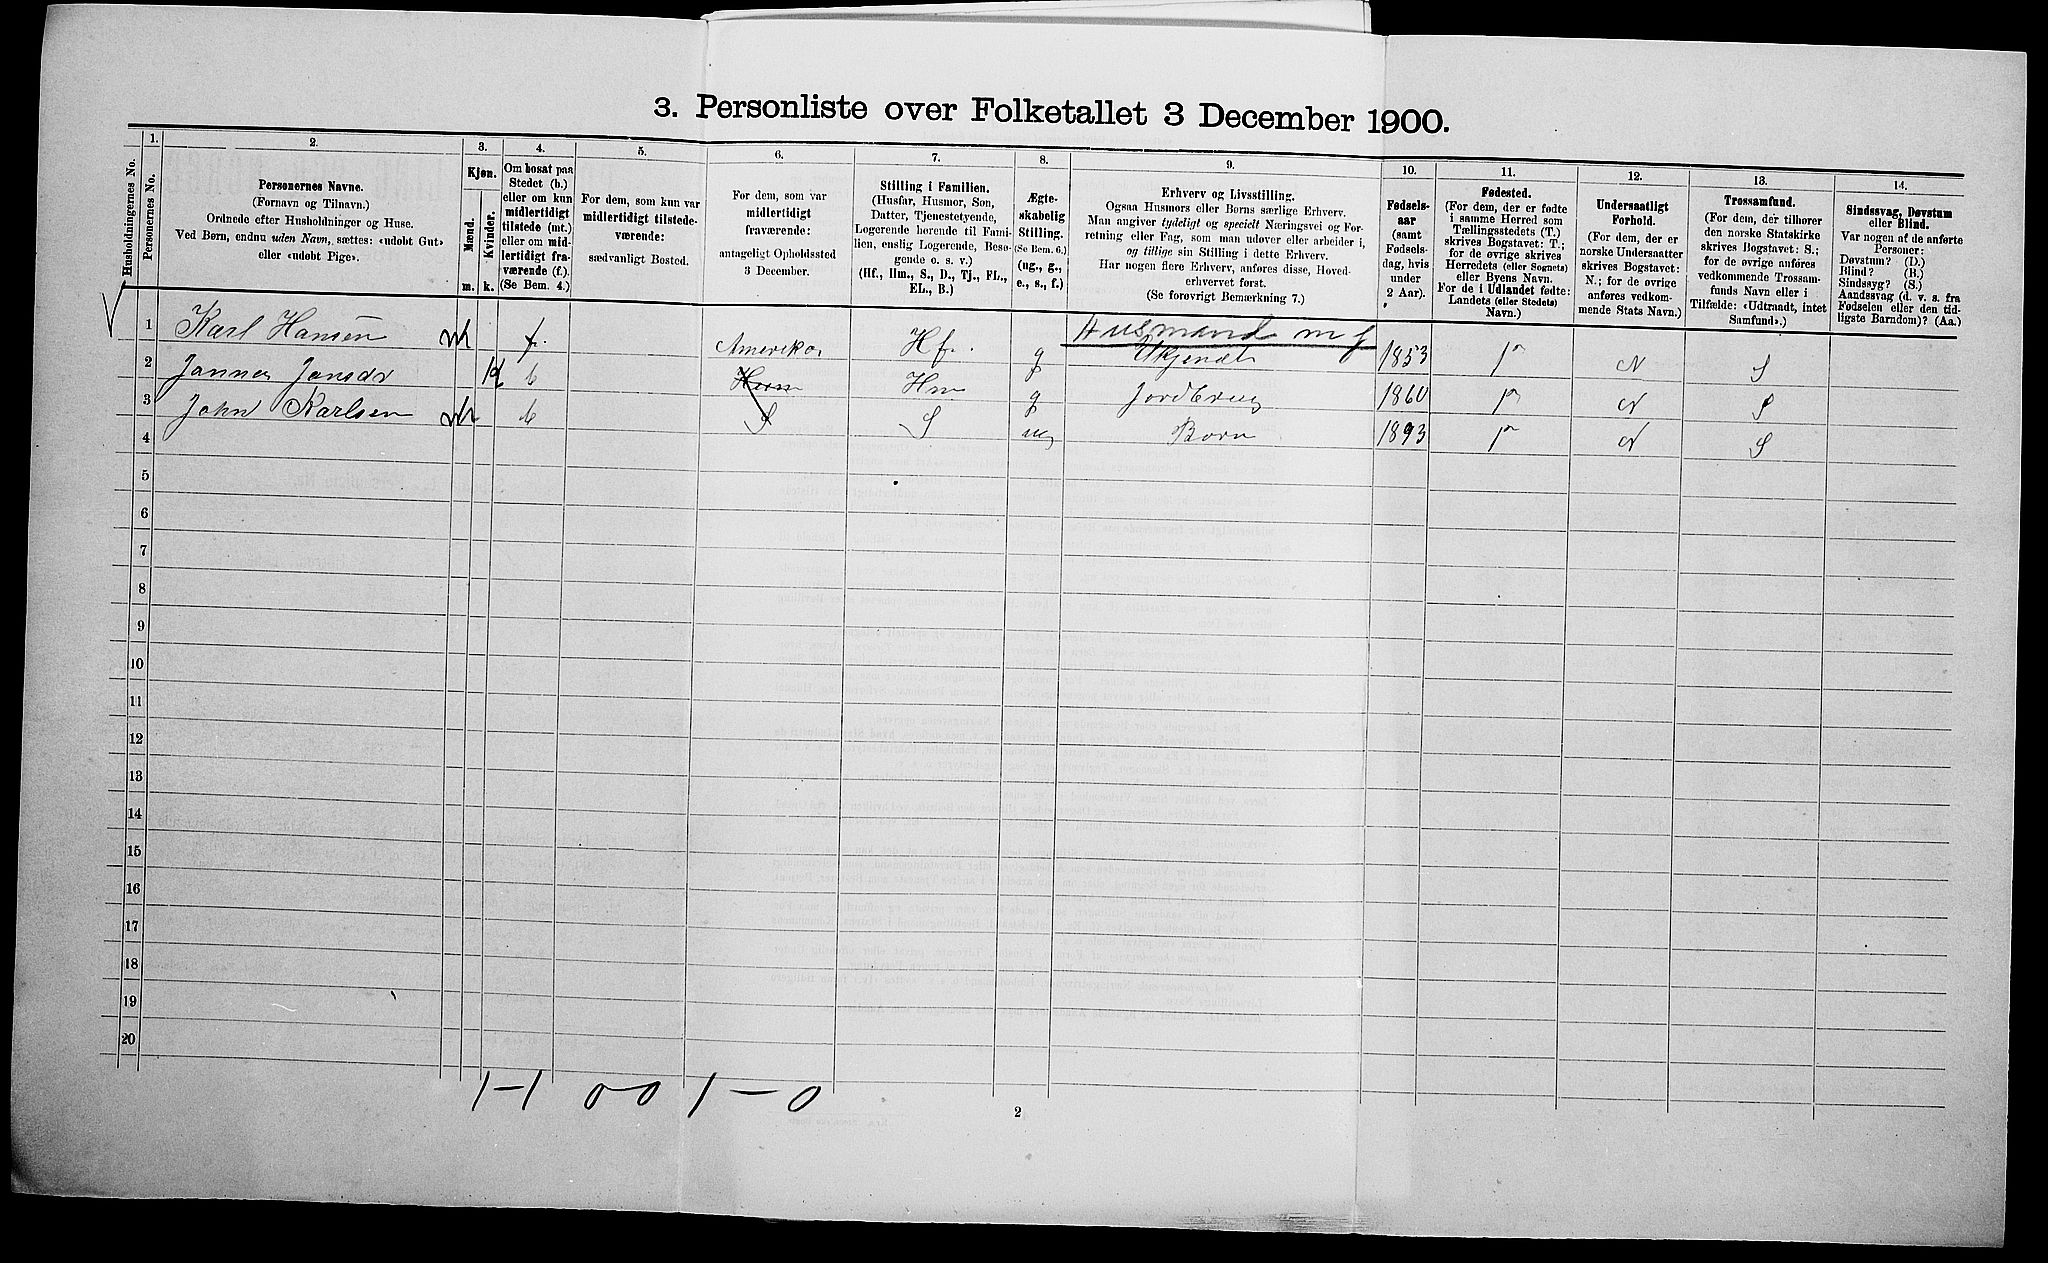 3. Personliste over Folketallet 3 December 1900.
Husholdningernes No.
1.
Personernes No.
2.
Personernes Navne.
(Fornavn og Tilnavn.)
Ordnede efter Husholdninger og Huse.
Ved Børn, endnu uden Navn, sættes: «udøbt Gut»
eller «udøbt Pige».
3.
Kjøn.
Mænd.
Kvinder.
m.
k.
4.
Om bosat paa
Stedet (b.)
eller om kun
midlertidigt
tilstede (mt.)
eller om mid-
lertidigt fra-
værende (f.).
(Se Bem. 4.)
5.
For dem, som kun var
midlertidigt tilstede-
værende:
sædvanligt Bosted.
6.
For dem, som var
midlertidigt
fraværende:
antageligt Opholdssted
3 December.
7.
Stilling i Familien.
(Husfar, Husmor, Søn,
Datter, Tjenestetyende,
Logerende hørende til Fami-
lien, enslig Logerende, Besø-
gende o. s. v.)
(Hf., Hm., S., D., Tj., FL.,
EL., B.)
8.
Ægte-
skabelig
Stilling.
(Se Bem. 6.)
(ug., g.,
e., s., f.)
9.
Erhverv og Livsstilling.
Ogsaa Husmors eller Børns særlige Erhverv.
Man angiver tydeligt og specielt Næringsvei og For-
retning eller Fag, som man udøver eller arbeider i,
og tillige sin Stilling i dette Erhverv.
Har nogen flere Erhverv, anføres disse, Hoved-
erhvervet først.
(Se forøvrigt Bemærkning 7.)
10.
Fødsels-
aar
(samt
Fødsels-
dag, hvis
under
2 Aar).
11.
Fødested.
(For dem, der er fødte
i samme Herred som
Tællingsstedets (T.)
skrives Bogstavet: T.;
for de øvrige skrives
Herredets (eller Sognets)
eller Byens Navn.
For de i Udlandet fødte:
Landets (eller Stedets)
Navn.)
12.
Undersaatligt
Forhold.
(For dem, der er
norske Undersaatter
skrives Bogstavet:
N.; for de øvrige
anføres vedkom-
mende Stats Navn.)
13.
Trossamfund.
(For dem, der tilhører
den norske Statskirke
skrives Bogstavet: S.;
for de øvrige anføres
vedkommende Trossam-
funds Navn eller i
Tilfælde: «Udtraadt, intet
Samfund».)
14.
Sindssvag, Døvstum
eller Blind.
Var nogen af de anførte
Personer:
Døvstum? (D.)
Blind? (B.)
Sindssyg? (S.)
Aandssvag (d. v. s. fra
Fødselen eller den tid-
ligste Barndom)? (Aa.)
1 Karl Hansen m f. Amerika Hf. g Husmand m J Ukjendt 1853 T N S
2 Janna Jansdr k b Hm g Jordbrug 1860 T N S
3 John Karlsen m b S S ug Barn 1893 T N S
4
5
6
7
8
9
10
11
12
13
14
15
16
17
18
19
20
1-1 0-0 1-0
2